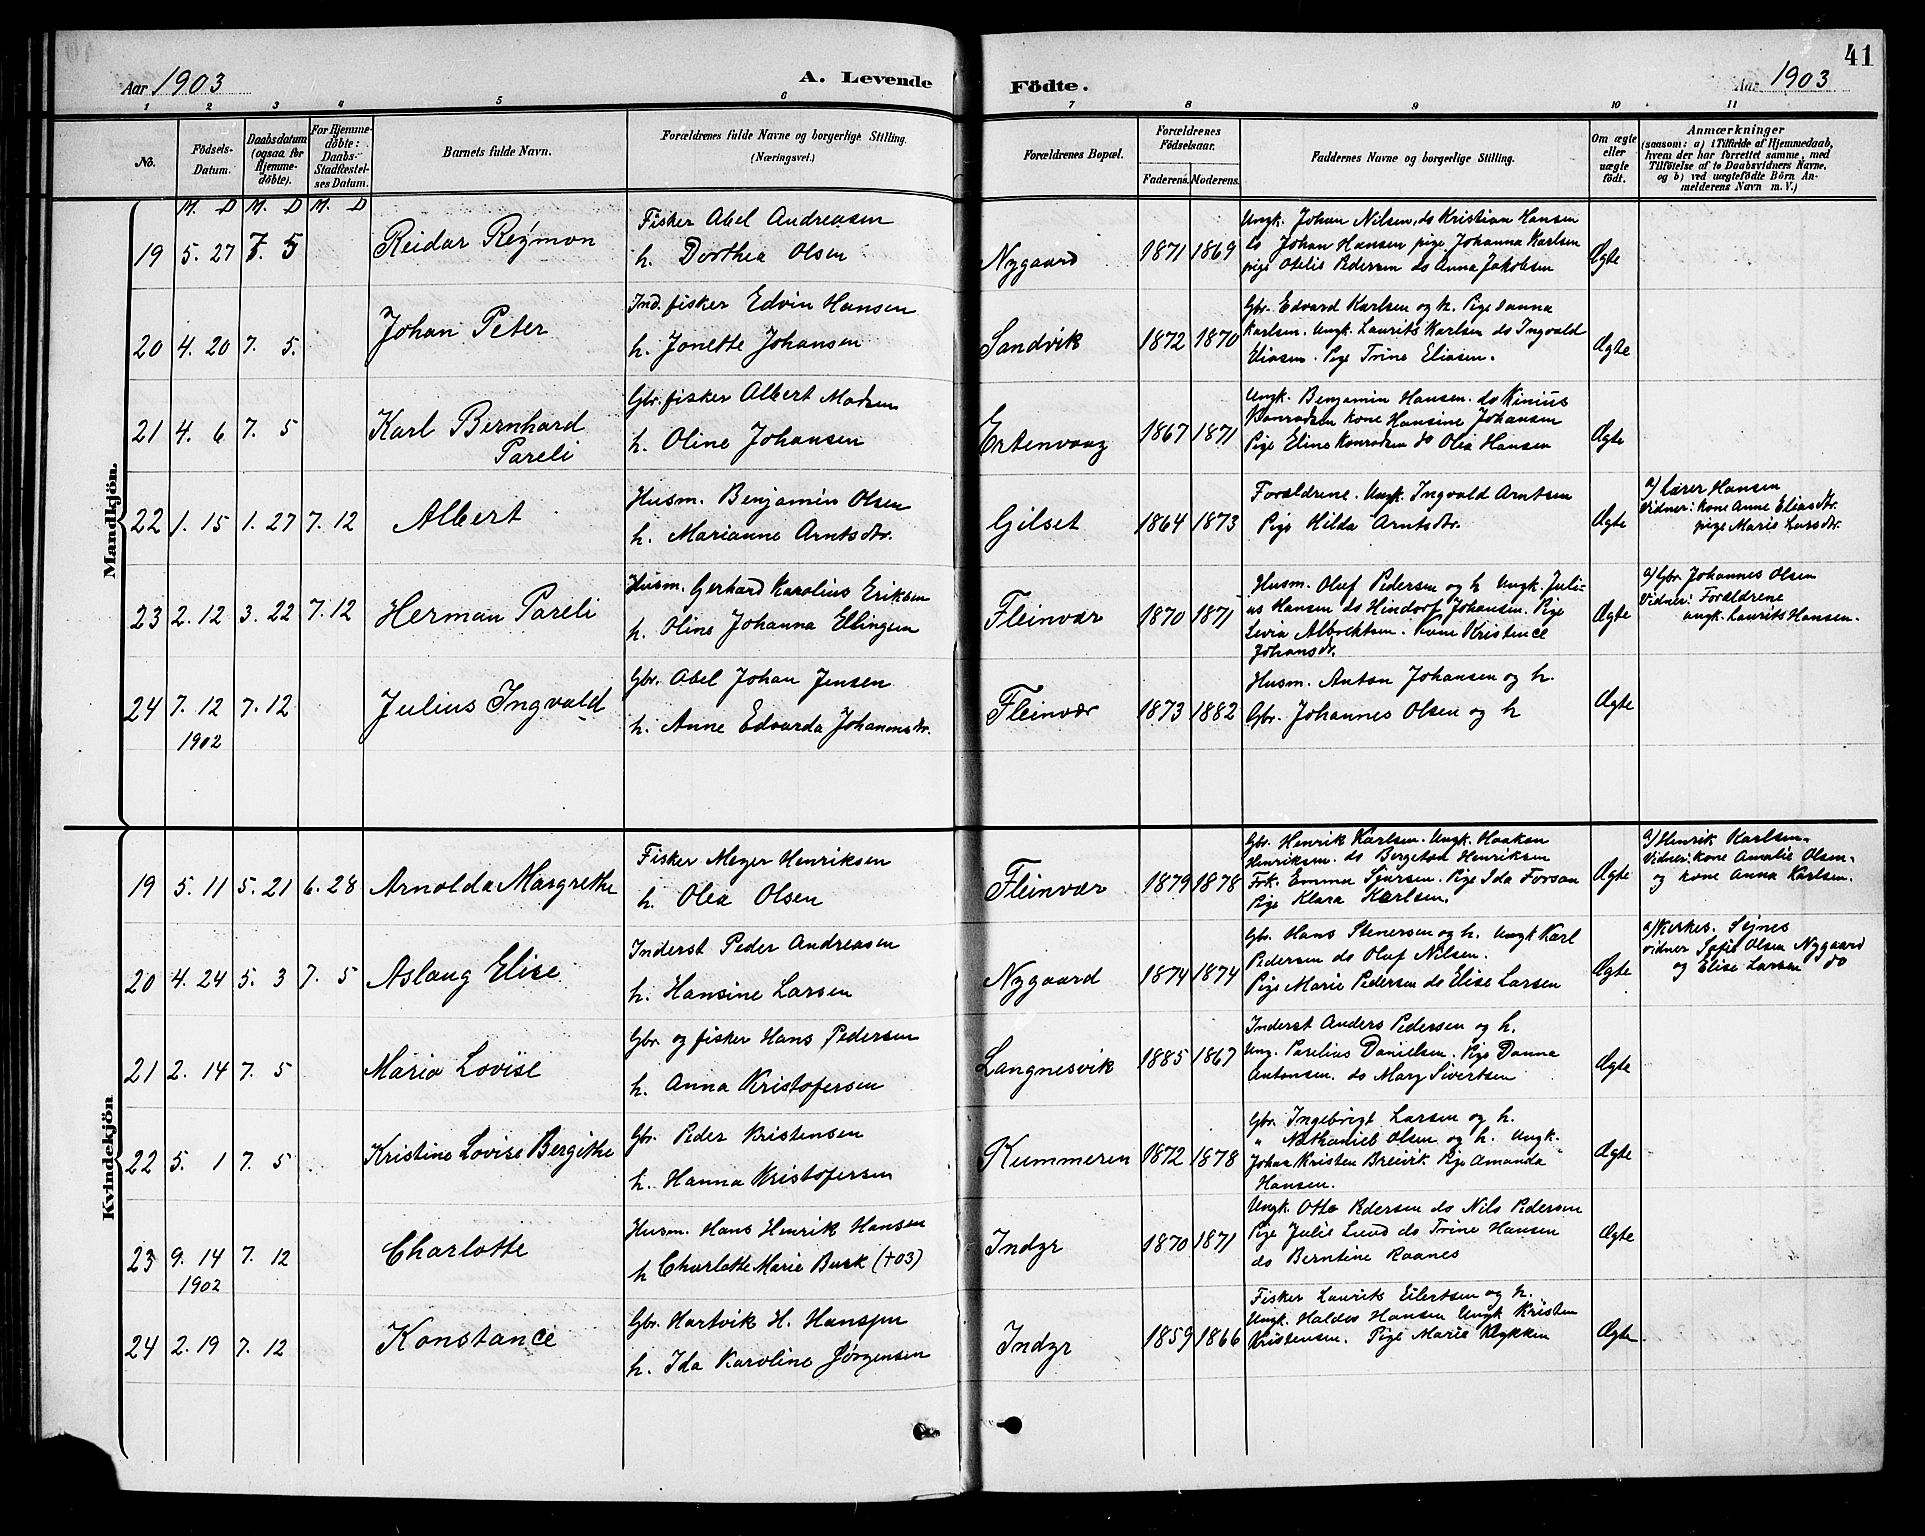 Aar 1903
A. Levende
Födte.
Aar 1903
41
1 2 3 4 5 6 7 8 9 10 11
No.
Födsels-
Datum.
Daabsdatum
(ogsaa for
Hjemme-
döbte).
For Hjemme-
döbte:
Daabs-
Stadfæstel-
ses Datum.
Barnets fulde Navn.
Forældrenes fulde Navne og borgerlige Stilling.
(Næringsvei.)
Forældrenes Bopæl.
Forældrenes
Födselsaar.
Faderens. Moderens.
Faddernes Navne og borgerlige Stilling.
Om ægte
eller
uægte
födt.
Anmærkninger
(saasom: a) i Tilfælde af Hjemmedaab,
hvem der har forrettet samme, med
Tilföielse af to Daabsvidners Navne,
og b) ved uægtefödte Börn An-
melderens Navn m. V.)
Mandkjön
M. D M. D M. D
19 5. 27 7. 5 Reidar Reymon
Fisker Abel Andreasen
h. Dorthea Olsen
Nygaard 1871 1869
Ungk. Johan Nilsen, do Kristian Hansen
do Johan Hansen pige Johanna Karlsen
pige Otelie Pedersen do Anna Jakobsen
Ægte
20 4. 20 7. 5. Johan Peter
Ind. fisker Edvin Hansen
h. Jonette Johansen
Sandvik 1872 1870
Gbr. Edvard Karlsen og h. Pige Sanna
Karlsen. Ungk. Laurits Karlsen do Ingvald
Eliasen. Pige Trine Eliasen.
Ægte
21 4. 6 7. 5 Karl Bernhard
Pareli
Gbr. fisker Albert Madsen
h. Oline Johansen
Ertenvaag 1867 1871
Ungk. Benjamin Hansen. do
Konradsen kone Hansine Johansen
Pige Eline Konradsen do Olea Hansen
Ægte
22 1. 15 1. 27 7. 12 Albert
Husm. Benjamin Olsen
h. Marianne Arntsdtr.
Gilset 1864 1873
Forældrene. Ungk. Ingvald Arntsen
Pige Hilda Arntsdtr.
Ægte
a) Lærer Hansen
Vidner: kone Anne Eliasdtr.
pige Marie Larsdtr.
23 2. 12 3. 22 7. 12 Herman Pareli
Husm. Gerhard Karolius Eriksen
h. Oline Johanna Ellingsen
Fleinvær 1870 1871
Husm. Oluf Pedersen og h Ungk. Juli-
us Hansen do Hindorf Johansen. Pige
Livia Albrektsen. Kone Kristence
Johansdtr.
Ægte
a) Gbr Johannes Olsen
Vidner: Forældrene
ungk. Laurits Hansen.
24 7. 12 7. 12 Julius Ingvald
1902
Gbr. Abel Johan Jensen
h. Anne Edvarda Johannesdtr.
Fleinvær 1873 1882
Husm. Anton Johansen og h.
Gbr. Johannes Olsen og h
Ægte
Kvindekjön
19 5. 11 5. 21 6. 28 Arnolda Margrethe
Fisker Meyer Henriksen
h. Olea Olsen
Fleinvær 1879 1878
Gbr. Henrik Karlsen. Ungk. Haakon
Henriksen. do Bergeton Henriksen
Frk. Emma Sjursen. Pige Ida Forsaa
Pige Klara Karlsen.
Ægte
a) Henrik Karlsen.
Vidner: kone Amalie Olsen.
og kone Anna Karlsen.
20 4. 24 5. 3 7. 5 Aslaug Elise
Inderst Peder Andreasen
h. Hansine Larsen
Nygaard 1874 1874
Gbr. Hans Stenersen og h. Ungk Karl
Pedersen do Oluf Nilsen.
Pige Marie Pedersen do Elise Larsen
Ægte
a) Kirkes. Seines
vidner Sofie Olsen Nygaard
og Elise Larsen do
21 2. 14 7. 5 Maria Lovise
Gbr. og fisker Hans Pedersen
h. Anna Kristofersen
Langnesvik 1885 1867
Inderst Anders Pedersen og h.
Ung. Parelius Danielsen. Pige Danna
Antonsen. do Mary Sivertsen
Ægte
22 5. 1 7. 5 Kristine Lovise Bergithe
Gbr. Peder Kristensen
h. Hanna Kristofersen
Kummeren 1872 1878
Gbr. Ingebrigt Larsen og h.
" Nathaniel Olsen og h. Ungk.
Johan Kristen Breivik Pige Amanda
Hansen.
Ægte
23 9. 14 7. 12 Charlotte
1902
Husm. Hans Henrik Hansen
h Charlotte Marie Busk (+03)
Indyr 1870 1871
Ungk. Otto Pedersen do Nils Pedersen
Pige Julie Lund do Trine Hansen
do Berntine Raanes
Ægte
24 2. 19 7. 12 Konstance
Gbr. Hartvik H. Hanssen
h. Ida Karoline Jørgensen
Indyr 1859 1866
Fisker Laurits Eilertsen og h.
Ungk. Haldor Hansen Ungk Kristen
Kristensen. Pige Marie Klykken
Ægte